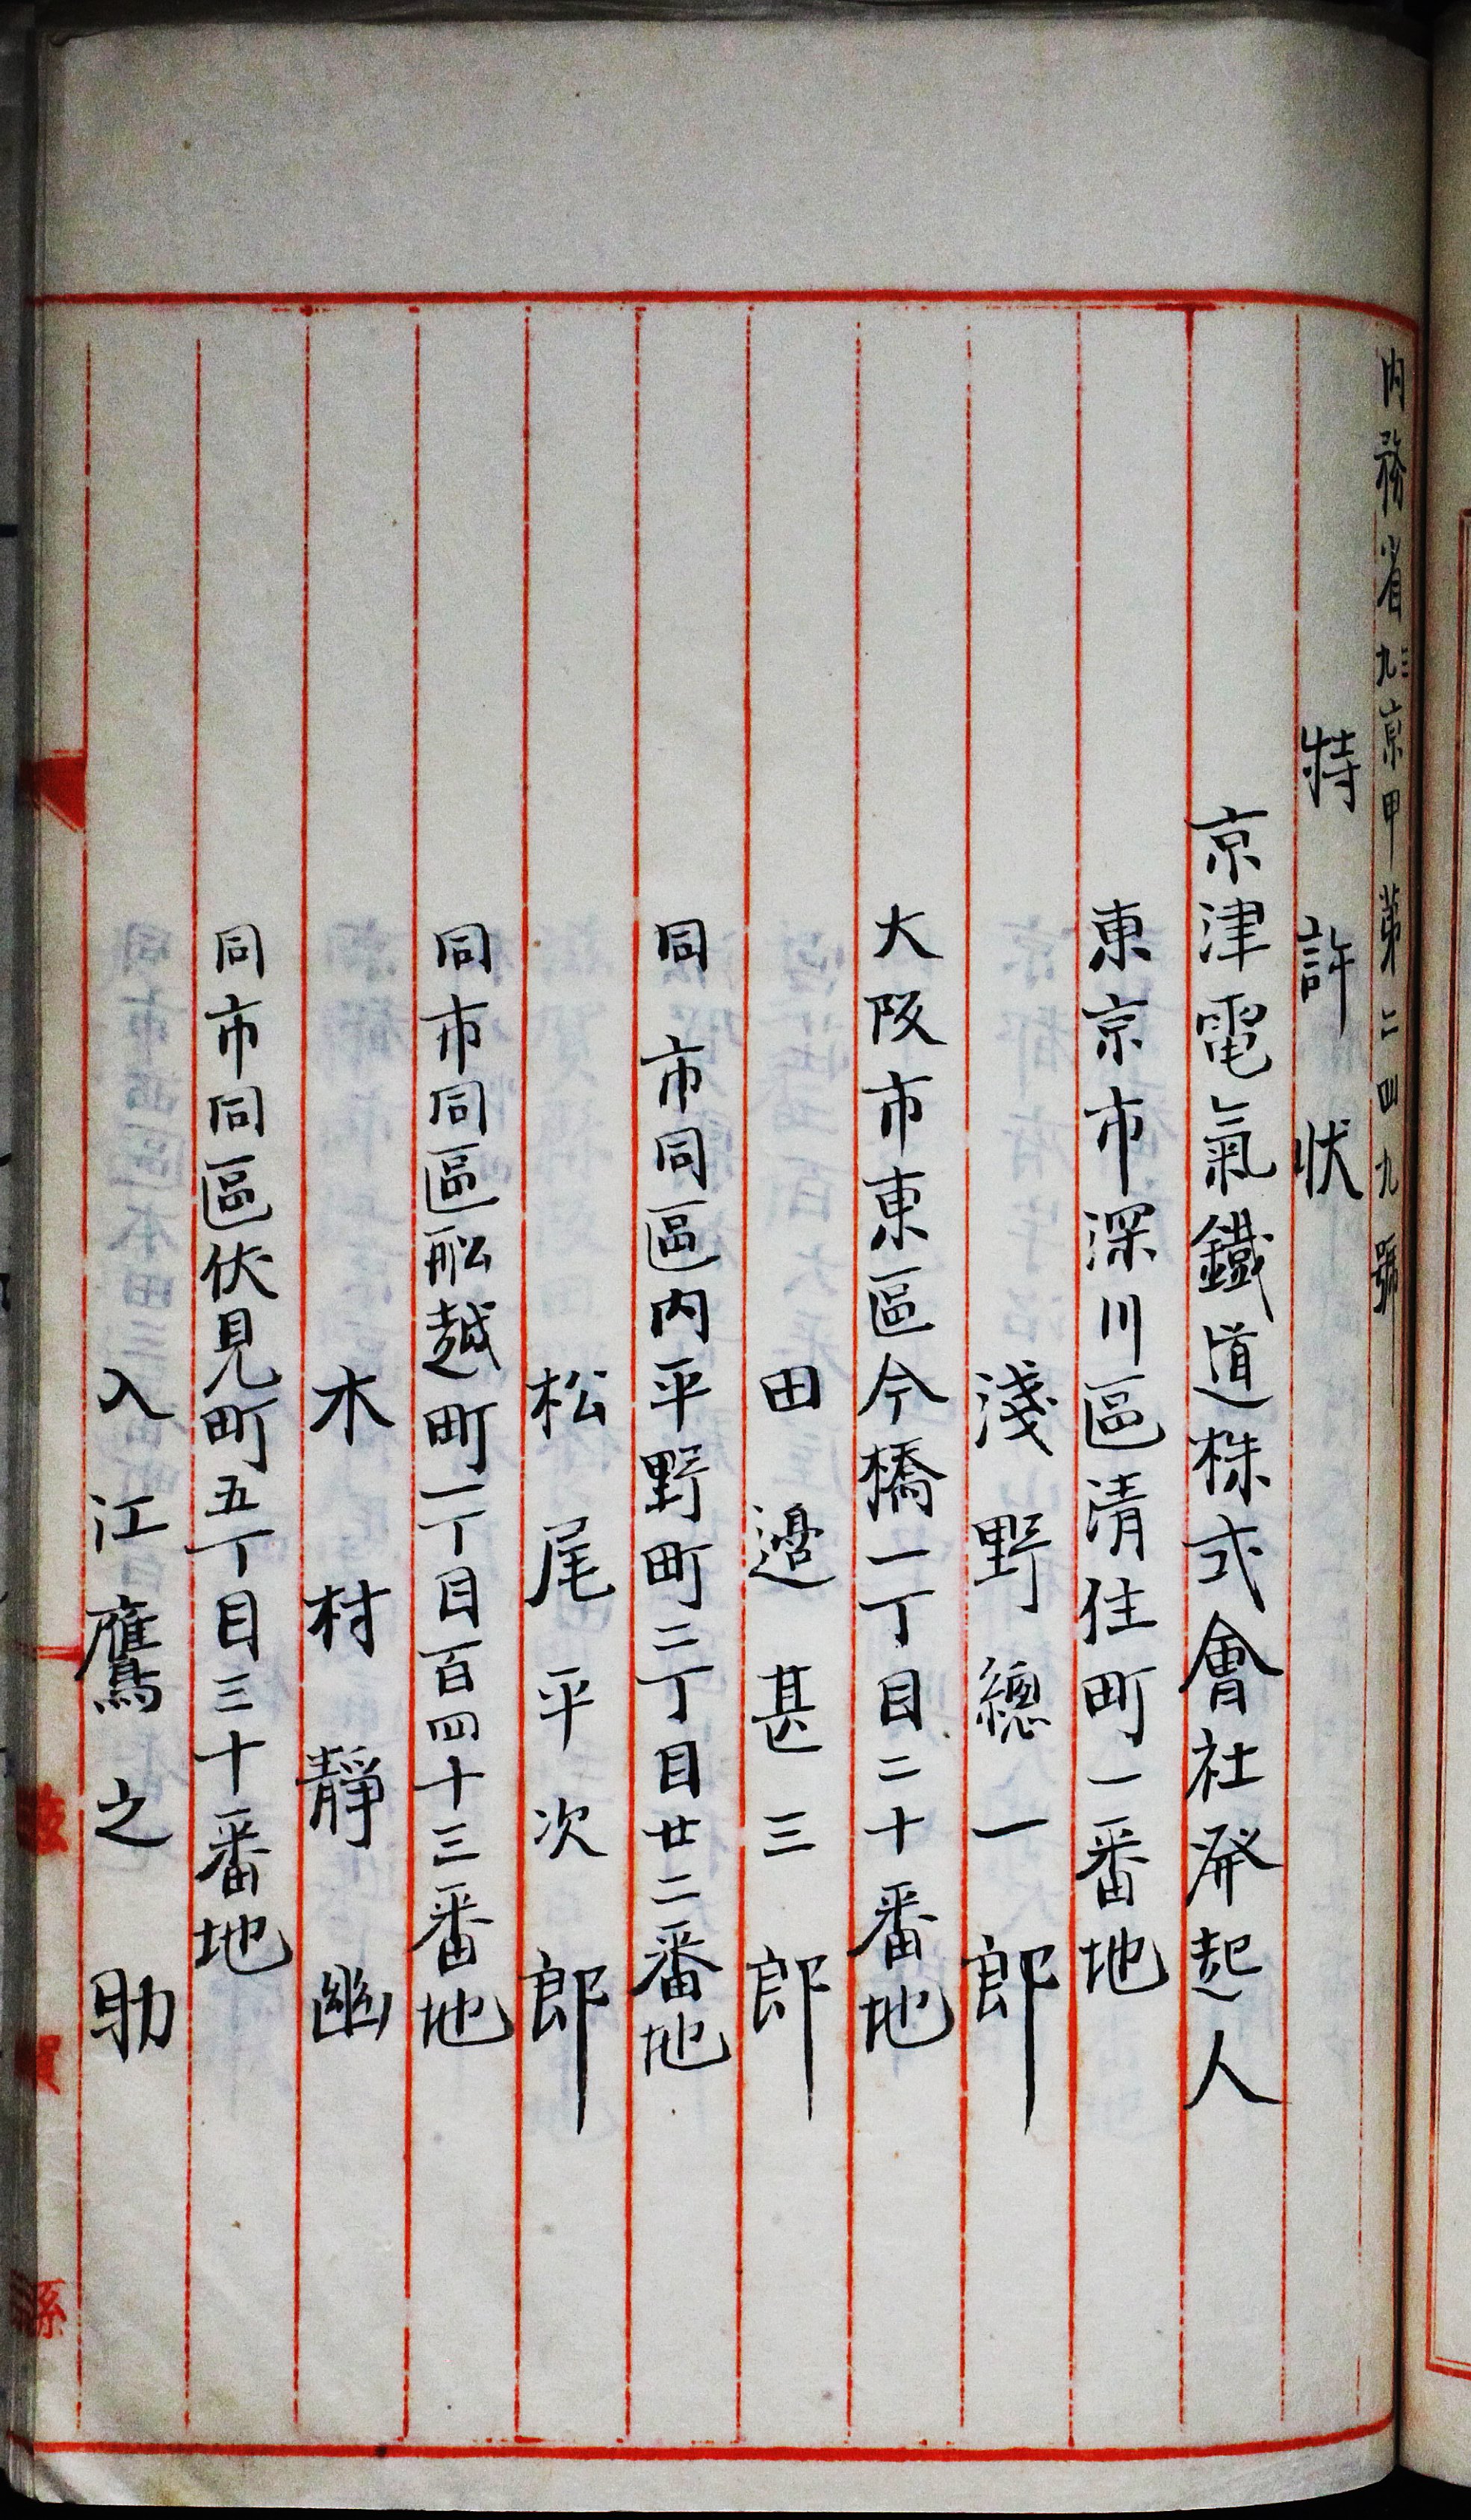 内務省三九京甲第二四九號
特許状
京津電氣鐵道株式會社発起人
東京市深川區清住町一番地
淺野總一郎
大阪市東區今橋一丁目二十番地
田邉甚三郎
同市同區内平野町二丁目廿二番地
松尾平次郎
同市同區船越町一丁目百四十三番地
木村靜幽
同市同區伏見町五丁目三十番地
入江鷹之助
滋賀縣